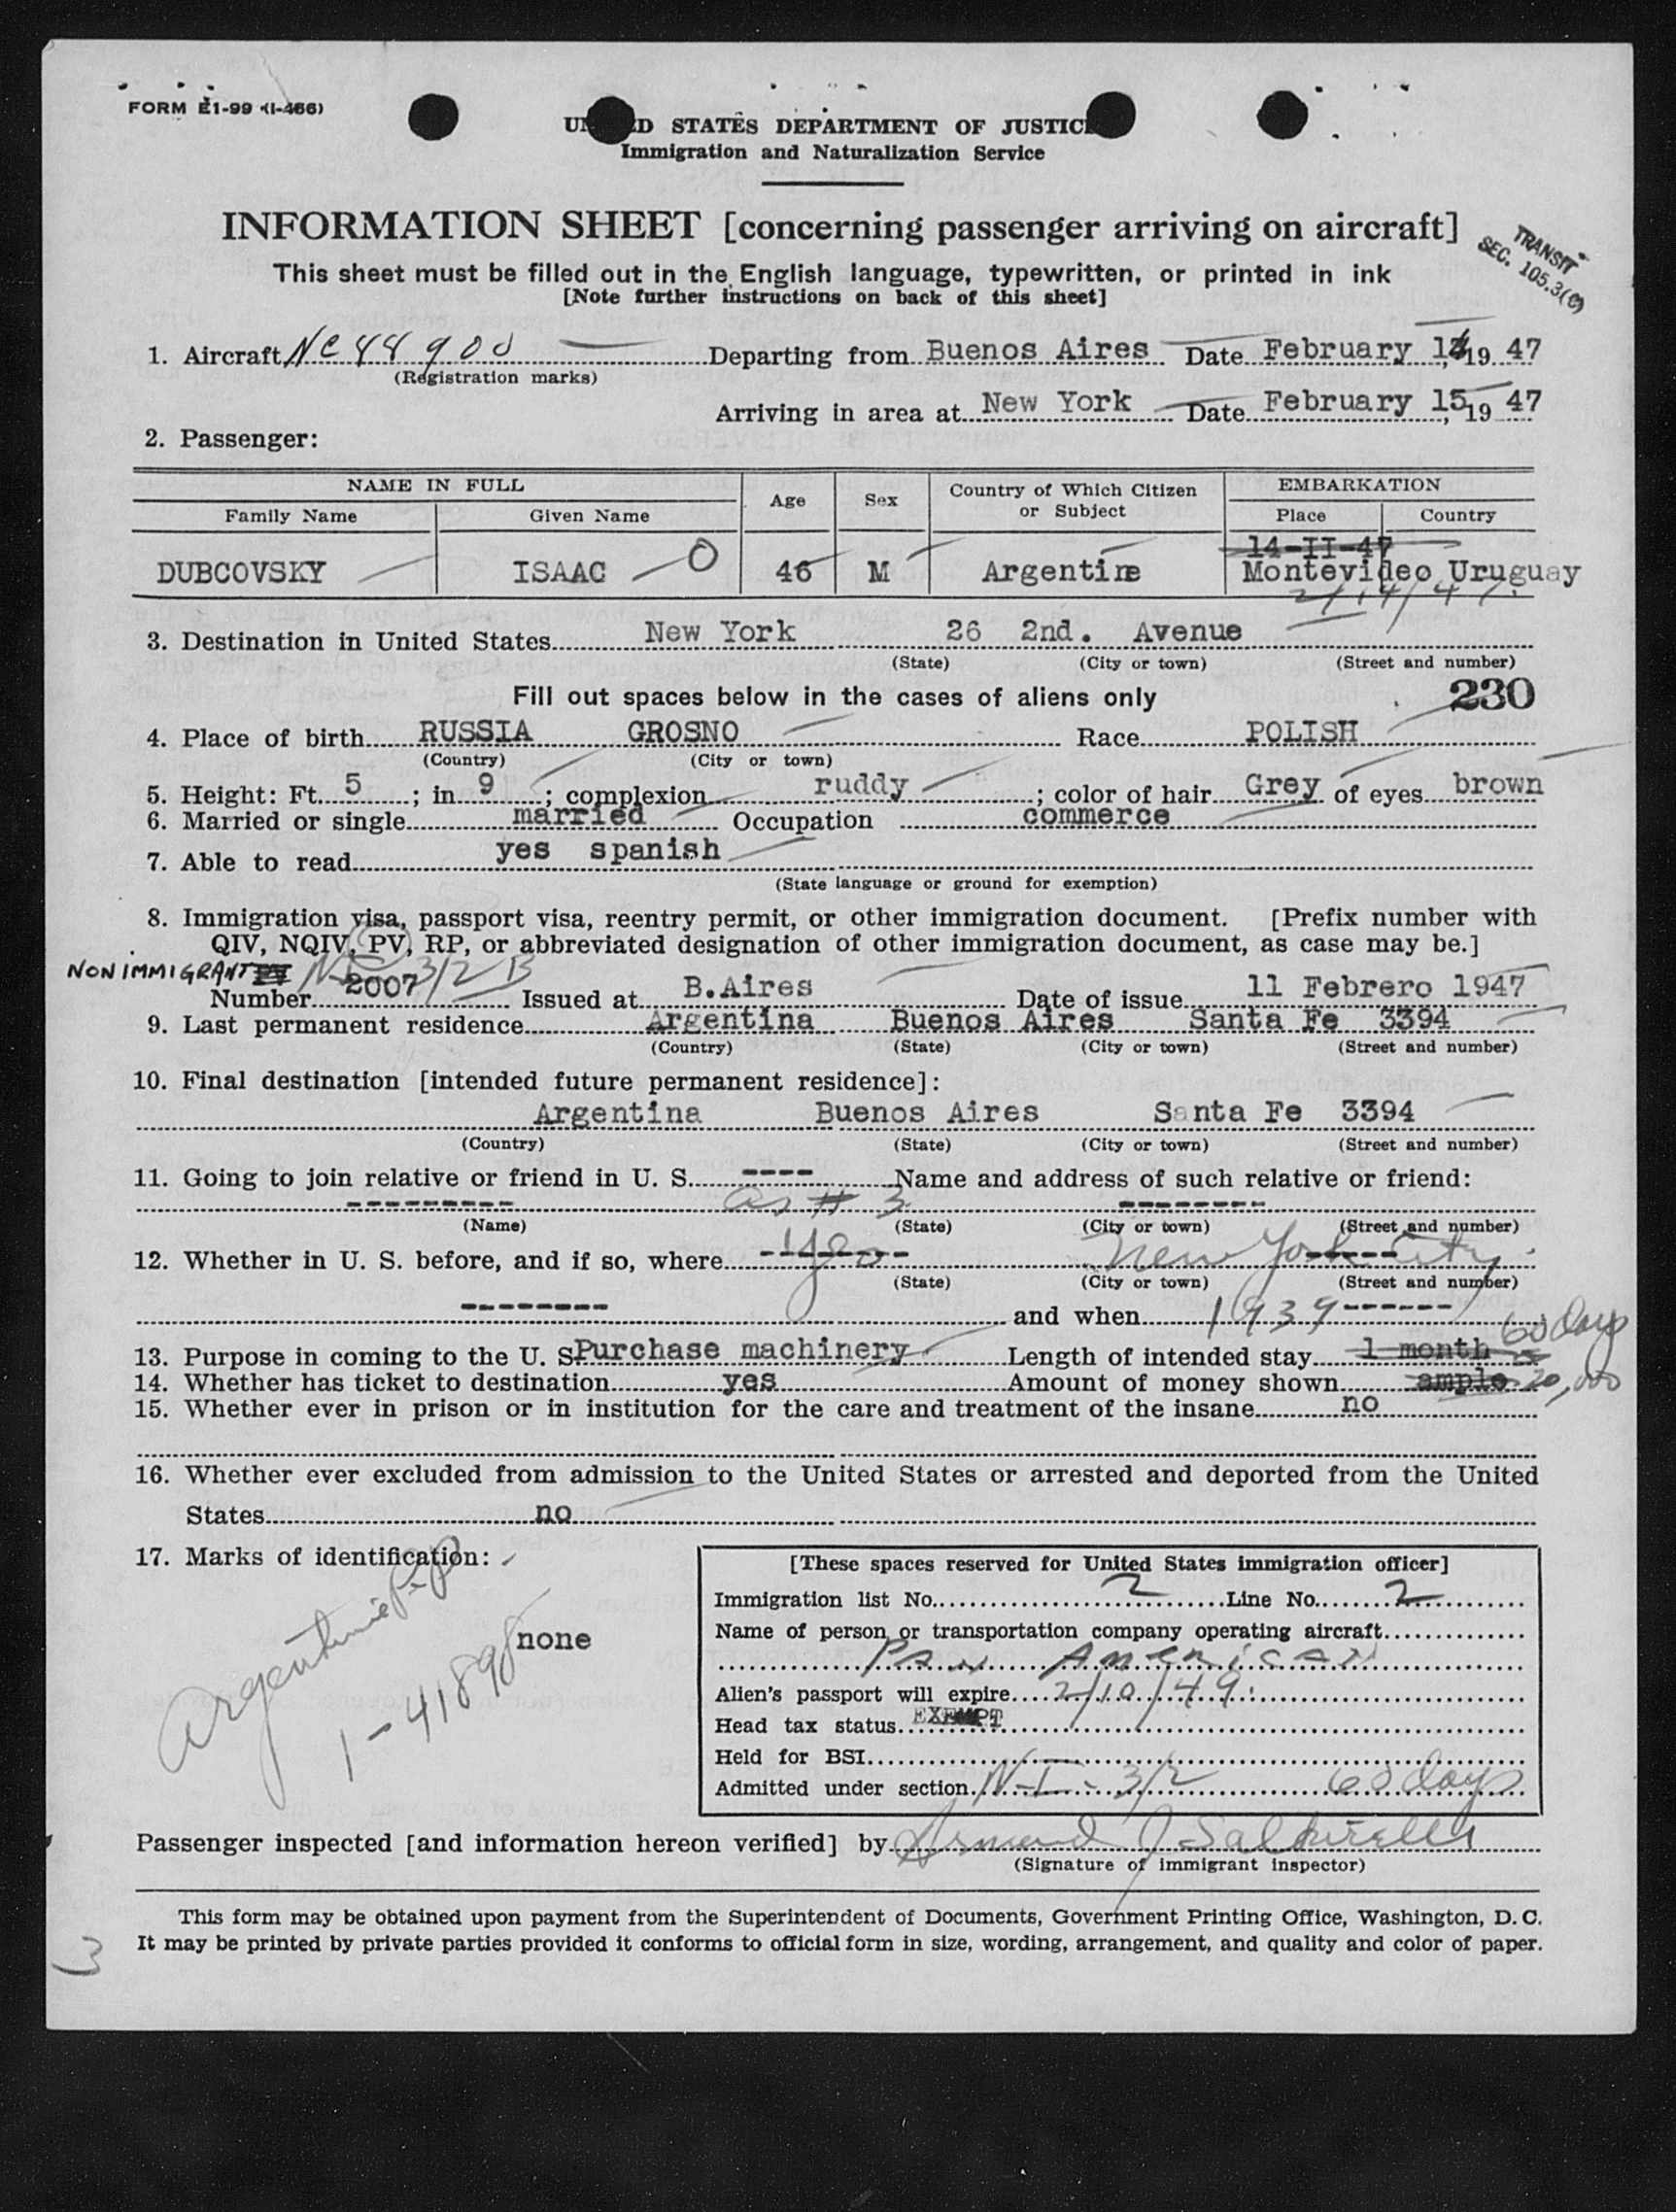 FORM E1-99 (I-466)
UNITED STATES DEPARTMENT OF JUSTICE
Immigration and Naturalization Service
INFORMATION SHEET [concerning passenger arriving on aircraft]
TRANSIT
SEC. 105.3(c)
This sheet must be filled out in the English language, typewritten, or printed in ink
[Note further instructions on back of this sheet]
1. Aircraft NC 44900 Departing from Buenos Aires Date February 14, 1947
(Registration marks)
Arriving in area at New York Date February 15, 1947
2. Passenger:
NAME IN FULL Age Sex Country of Which Citizen or Subject EMBARKATION
Family Name Given Name Place Country
14-II-47
DUBCOVSKY ISAAC O 46 M Argentine Montevideo Uruguay
2/14/47
3. Destination in United States New York 26 2nd. Avenue
(State) (City or town) (Street and number)
Fill out spaces below in the cases of aliens only 230
4. Place of birth RUSSIA GROSNO Race POLISH
(Country) (City or town)
5. Height: Ft. 5; in 9; complexion ruddy; color of hair Grey of eyes brown
6. Married or single married Occupation commerce
7. Able to read yes spanish
(State language or ground for exemption)
8. Immigration visa, passport visa, reentry permit, or other immigration document. [Prefix number with
QIV, NQIV, PV, RP, or abbreviated designation of other immigration document, as case may be.]
NONIMMIGRANT NI 3/2 B
Number 2007 Issued at B.Aires Date of issue 11 Febrero 1947
9. Last permanent residence Argentina Buenos Aires Santa Fe 3394
(Country) (State) (City or town) (Street and number)
10. Final destination [intended future permanent residence]:
Argentina Buenos Aires Santa Fe 3394
(Country) (State) (City or town) (Street and number)
11. Going to join relative or friend in U. S. ---- Name and address of such relative or friend:
--------- as # 3 --------
(Name) (State) (City or town) (Street and number)
12. Whether in U. S. before, and if so, where yes New York City
(State) (City or town) (Street and number)
-------- and when 1939 ------
60 days
13. Purpose in coming to the U. S. Purchase machinery Length of intended stay 1 month
14. Whether has ticket to destination yes Amount of money shown ample 20,000
15. Whether ever in prison or in institution for the care and treatment of the insane no
16. Whether ever excluded from admission to the United States or arrested and deported from the United
States no
17. Marks of identification:
none
Argentine P.P.
1-41898
[These spaces reserved for United States immigration officer]
Immigration list No. 2 Line No. 2
Name of person or transportation company operating aircraft
Pan American
Alien's passport will expire 2/10/49
Head tax status EXEMPT
Held for BSI
Admitted under section N-I- 3/2 60 days
Passenger inspected [and information hereon verified] by Armand J
(Signature of immigrant inspector)
This form may be obtained upon payment from the Superintendent of Documents, Government Printing Office, Washington, D. C.
It may be printed by private parties provided it conforms to official form in size, wording, arrangement, and quality and color of paper.
3